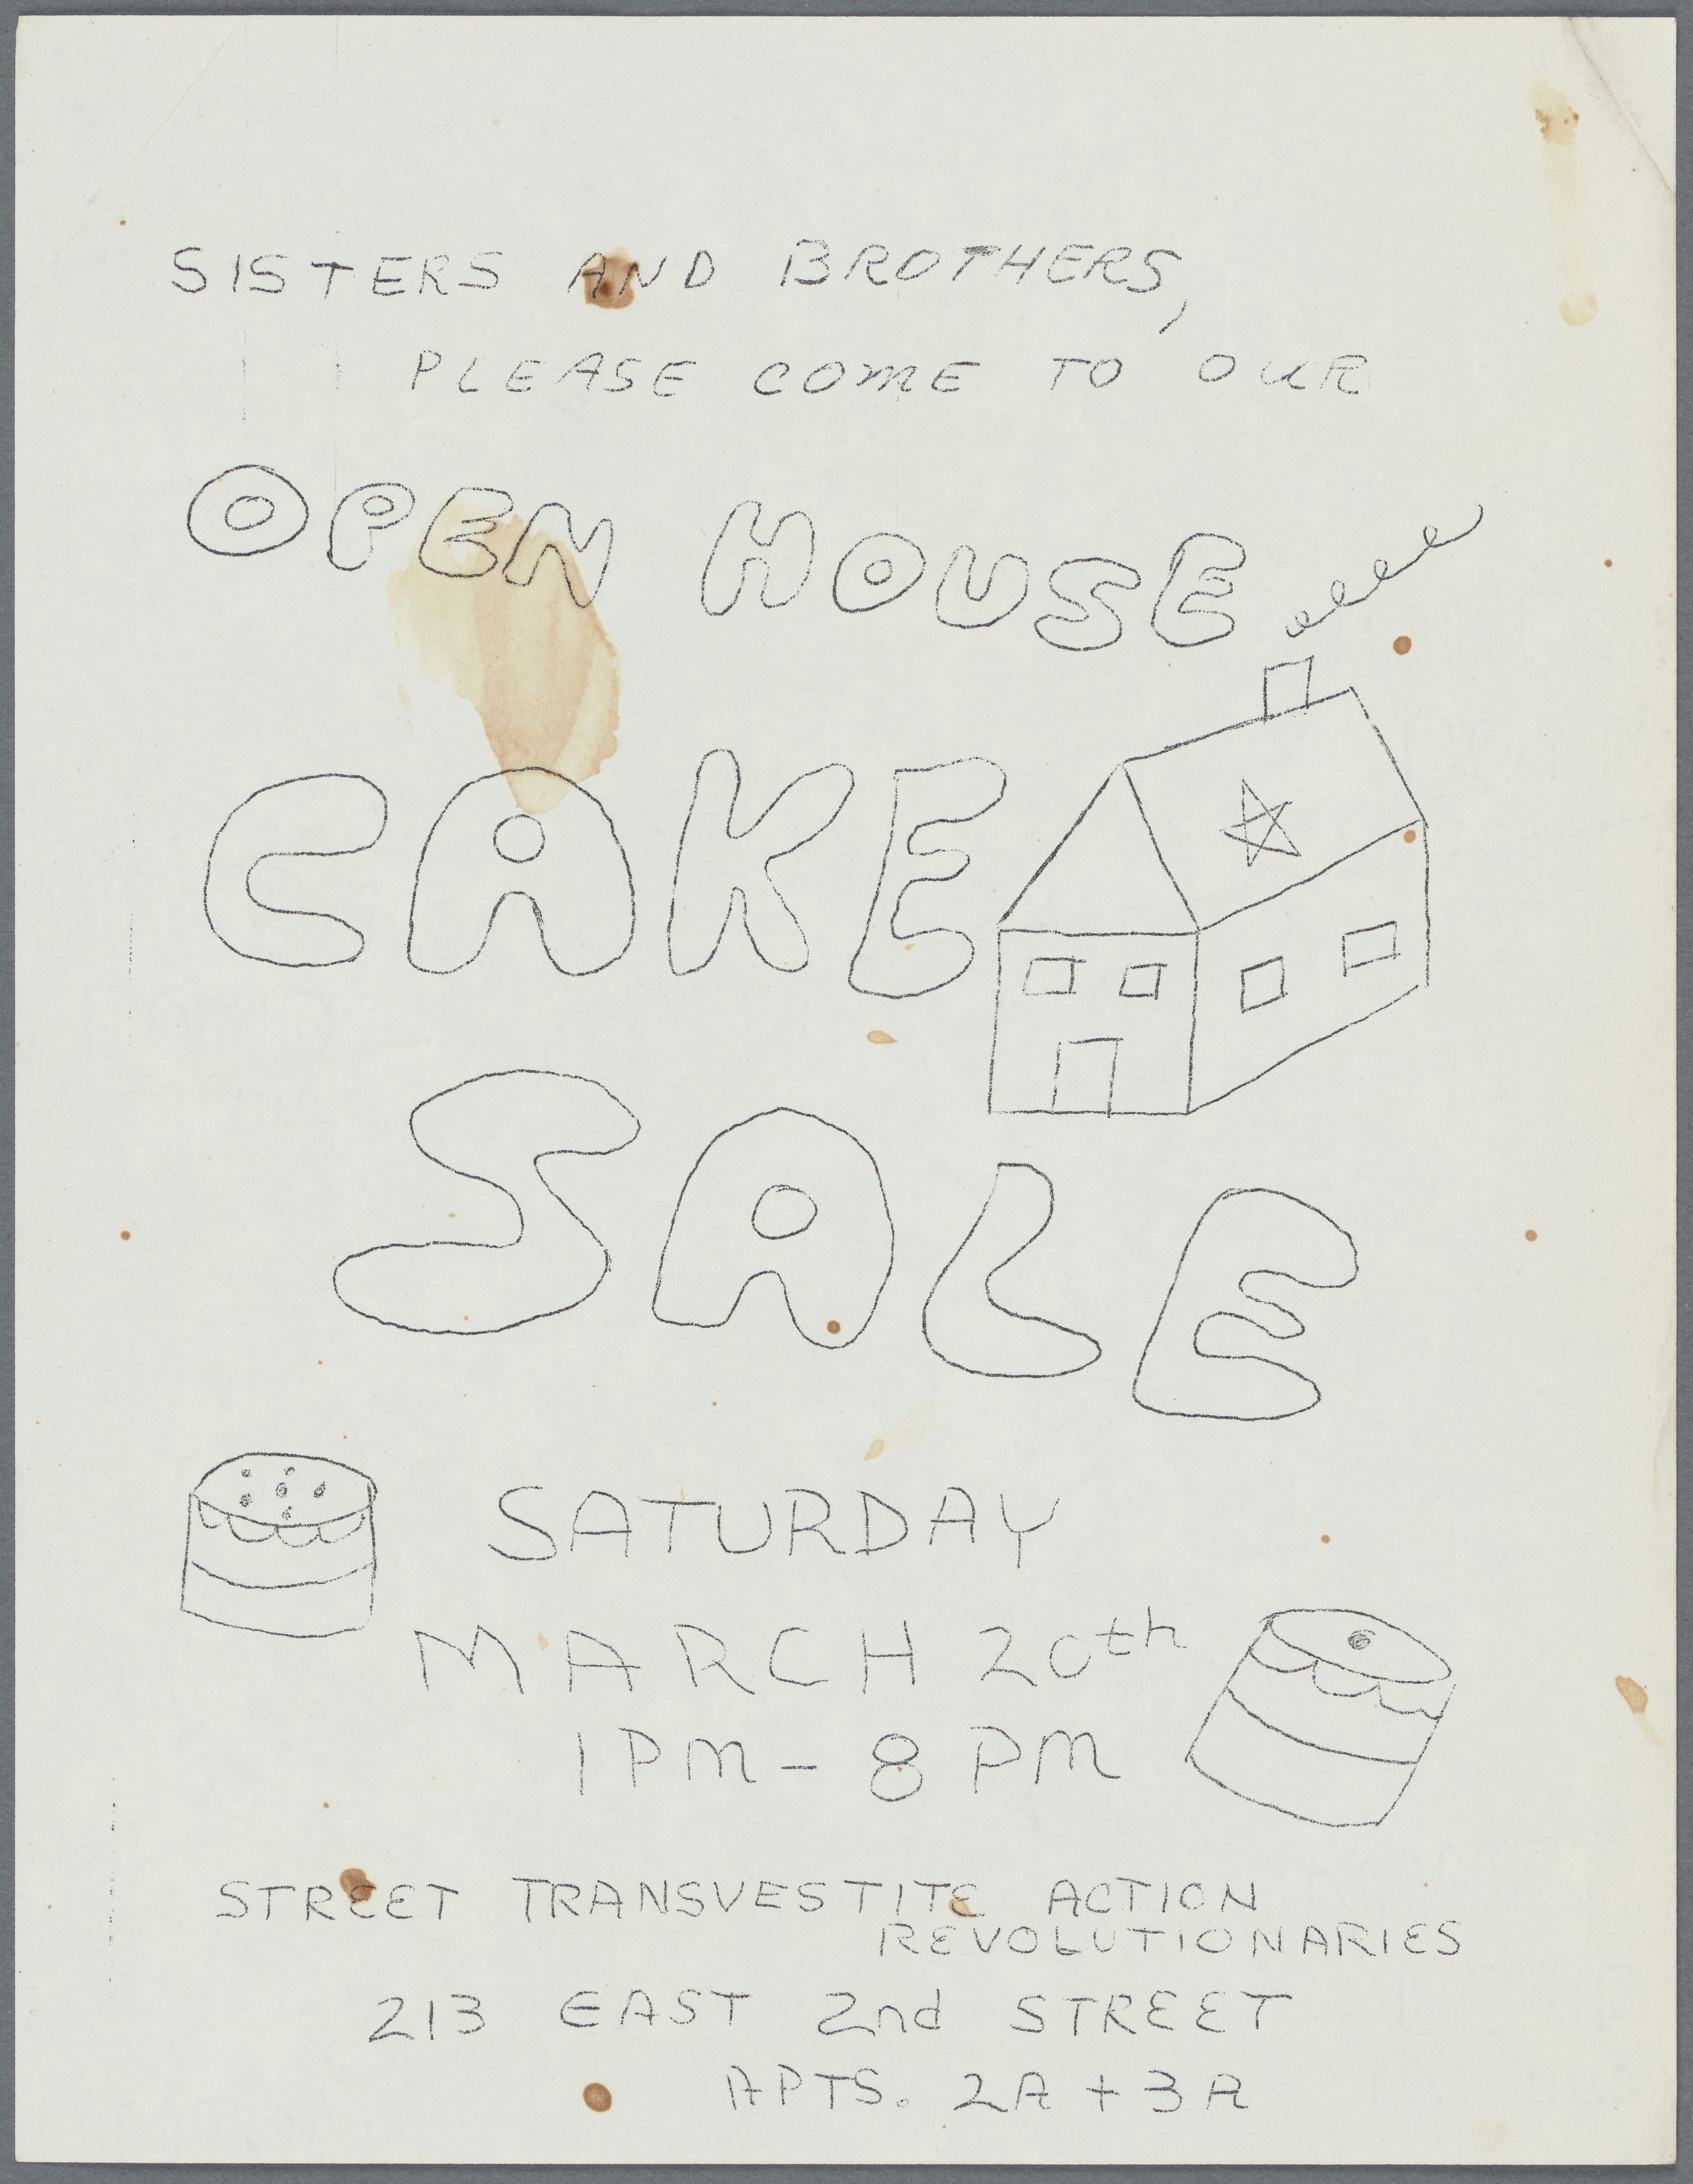 SISTERS AND BROTHERS,
PLEASE COME TO OUR
OPEN HOUSE
CAKE
SALE
SATURDAY
MARCH 20th
1PM - 8 PM
STREET TRANSVESTITE ACTION
REVOLUTIONARIES
213 EAST 2nd STREET
APTS. 2A + 3A